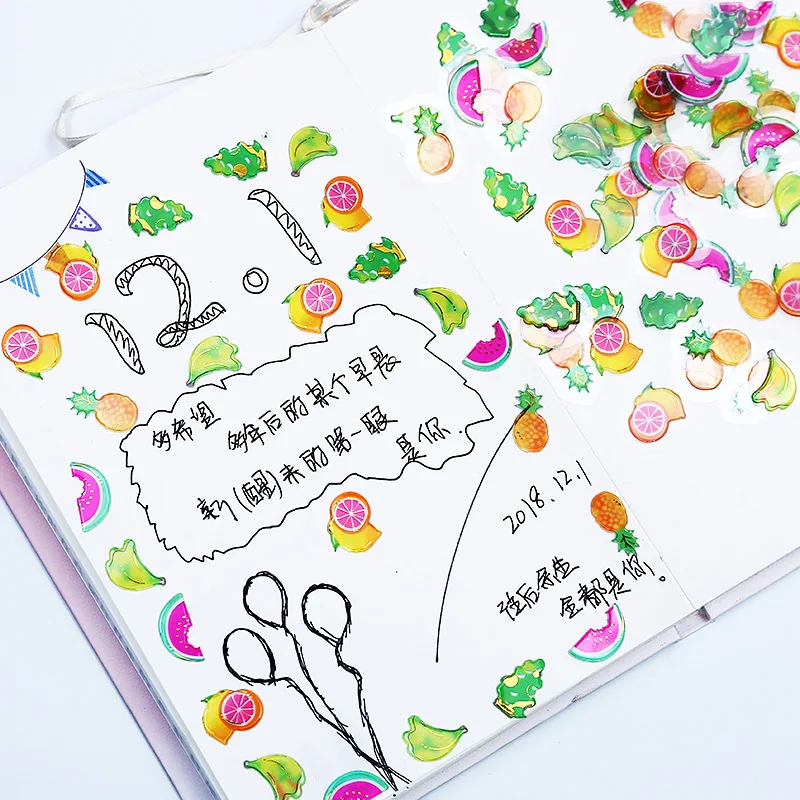 12.1
多希望 多年后的某个早晨
新(醒)来的第一眼
是你.
2018.12.1
往后余生
全都是你。